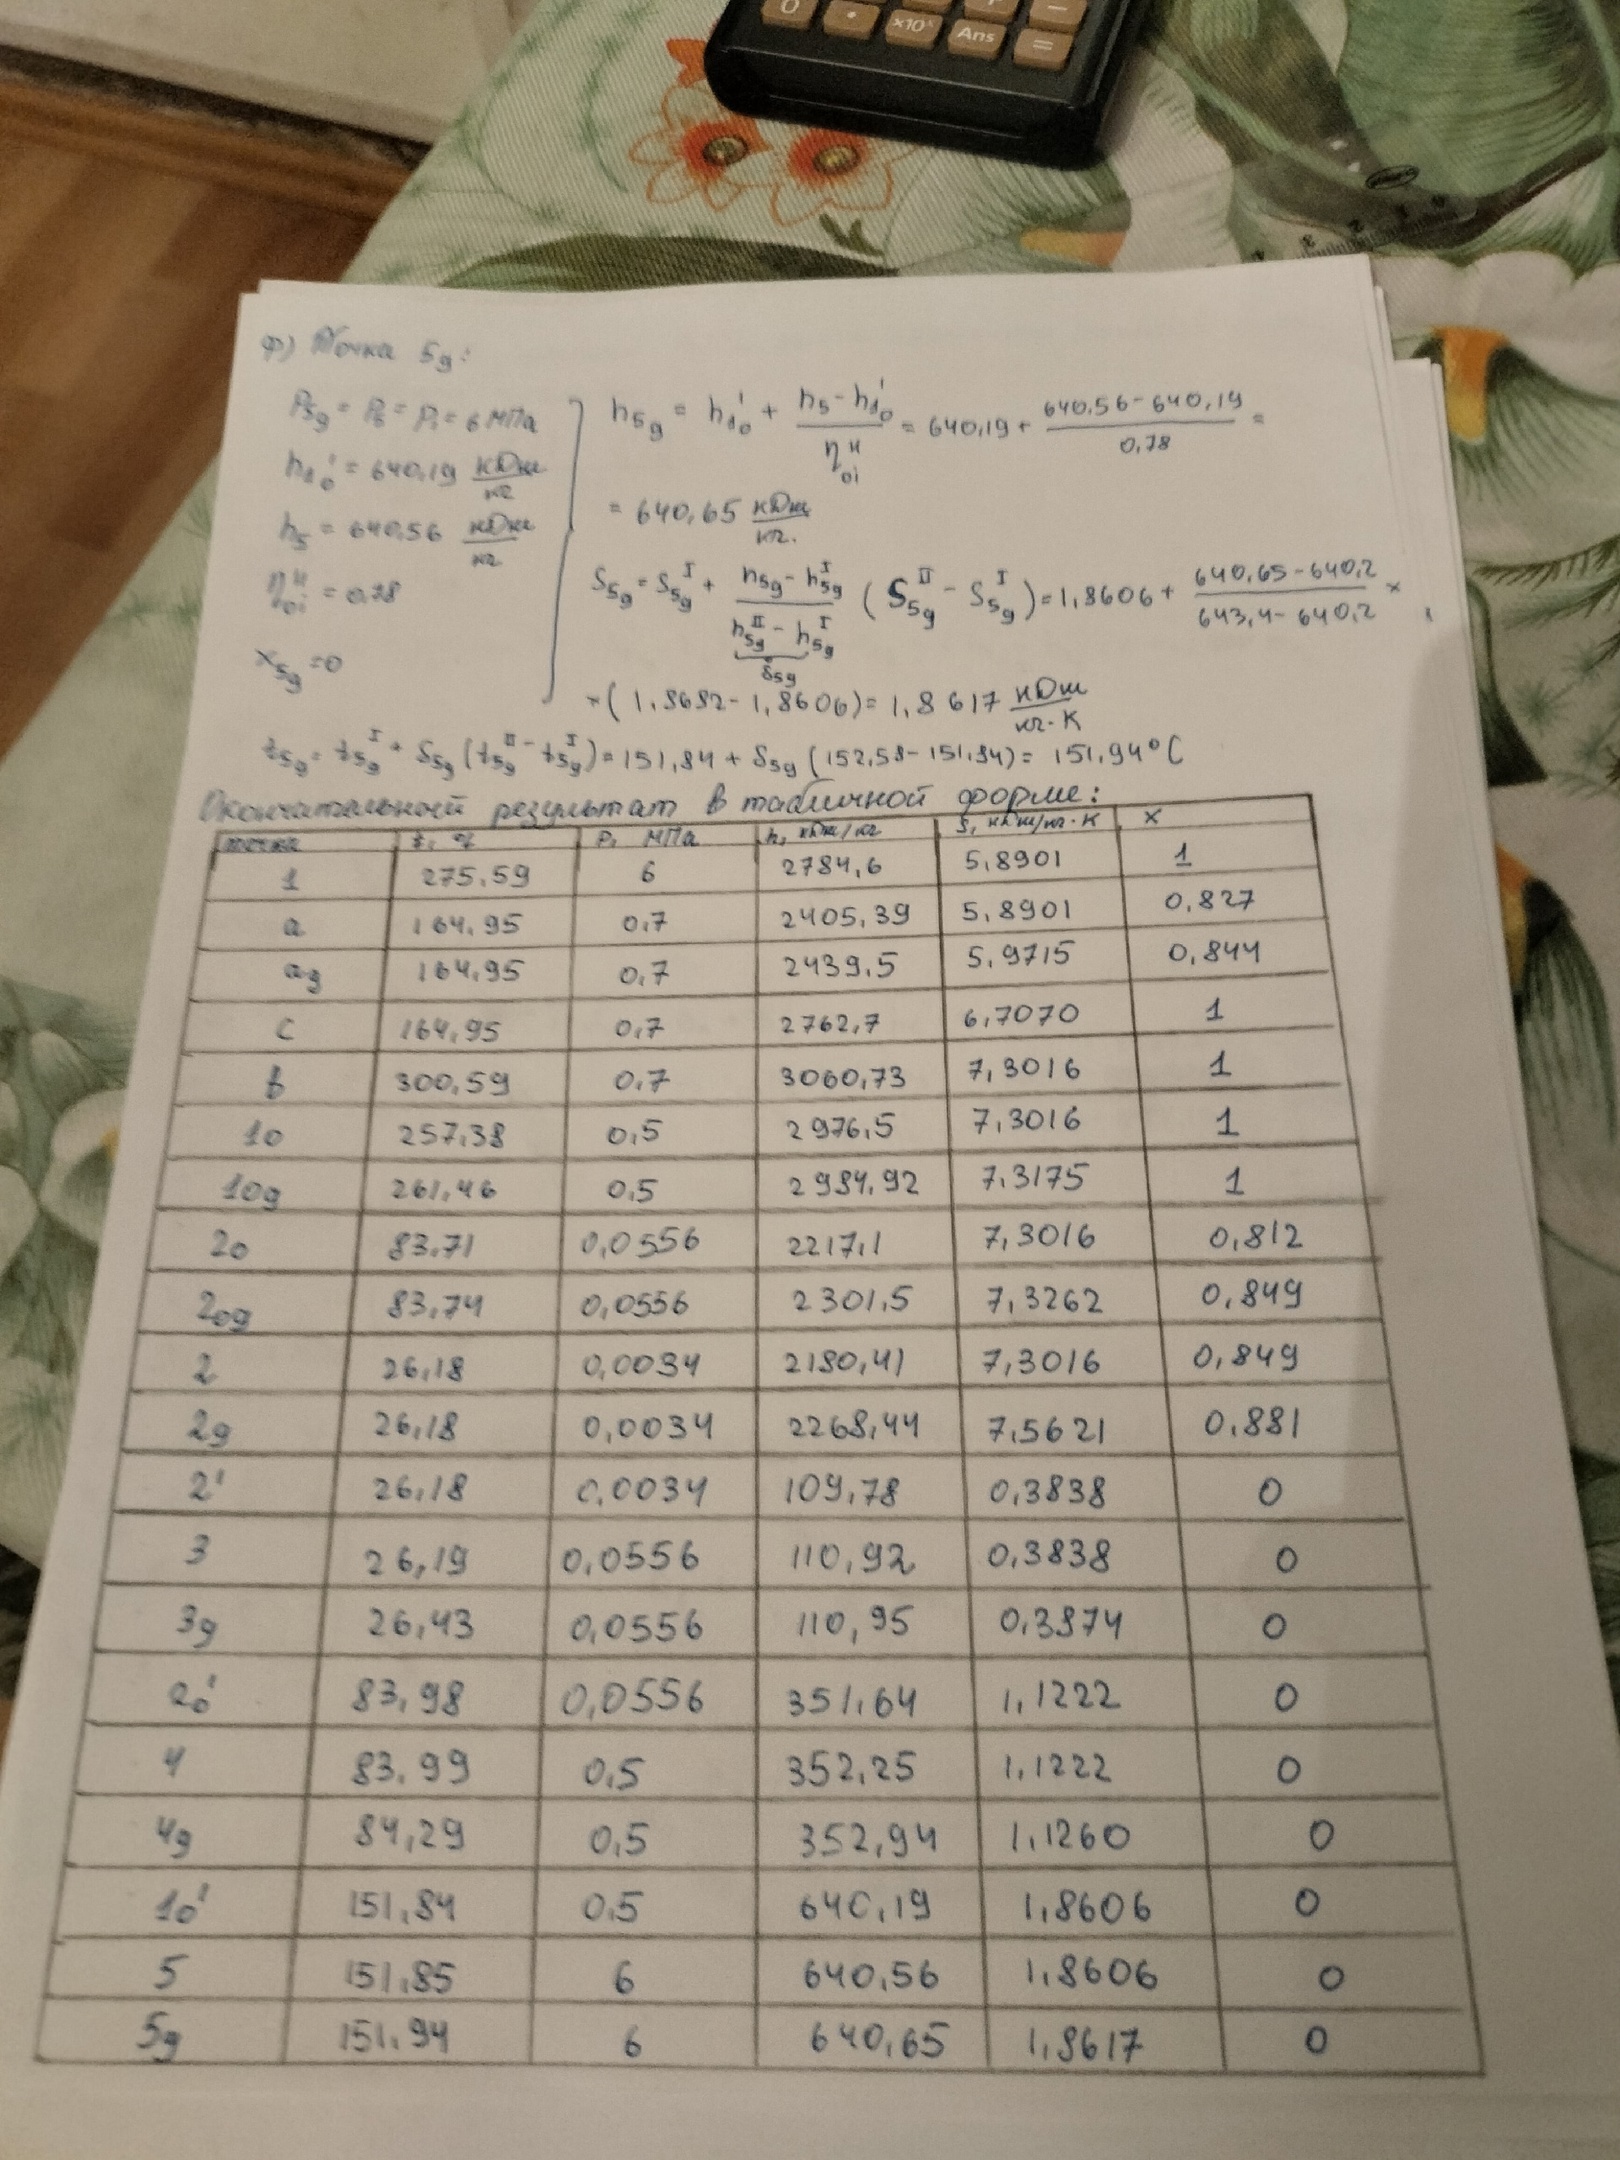 0 • ×10ˣ Ans =
−
ф) Точка 5g:
P5g = P5 = P1 = 6 МПа
h10' = 640,19 кДж/кг
h5 = 640,56 кДж/кг
ηoiн = 0,78
x5g = 0
h5g = h10' + (h5 - h10')/ηoiн = 640,19 + (640,56 - 640,19)/0,78 =
= 640,65 кДж/кг.
S5g = S5gI + (h5g - h5gI)/(h5gII - h5gI) (S5gII - S5gI) = 1,8606 + (640,65 - 640,2)/(643,4 - 640,2) ×
δ5g
× (1,8682 - 1,8606) = 1,8617 кДж/кг·К
t5g = t5gI + δ5g (t5gII - t5gI) = 151,84 + δ5g (152,58 - 151,84) = 151,94 °C
Окончательной результат в табличной форме:
точка t, °C P, МПа h, кДж/кг S, кДж/кг·К x
1 275,59 6 2784,6 5,8901 1
a 164,95 0,7 2405,39 5,8901 0,827
ag 164,95 0,7 2439,5 5,9715 0,844
c 164,95 0,7 2762,7 6,7070 1
b 300,59 0,7 3060,73 7,3016 1
10 257,38 0,5 2976,5 7,3016 1
10g 261,46 0,5 2984,92 7,3175 1
20 83,71 0,0556 2217,1 7,3016 0,812
20g 83,74 0,0556 2301,5 7,3262 0,849
2 26,18 0,0034 2180,41 7,3016 0,849
2g 26,18 0,0034 2268,44 7,5621 0,881
2' 26,18 0,0034 109,78 0,3838 0
3 26,19 0,0556 110,92 0,3838 0
3g 26,43 0,0556 110,95 0,3874 0
20' 83,98 0,0556 351,64 1,1222 0
4 83,99 0,5 352,25 1,1222 0
4g 84,29 0,5 352,94 1,1260 0
10' 151,84 0,5 640,19 1,8606 0
5 151,85 6 640,56 1,8606 0
5g 151,94 6 640,65 1,8617 0